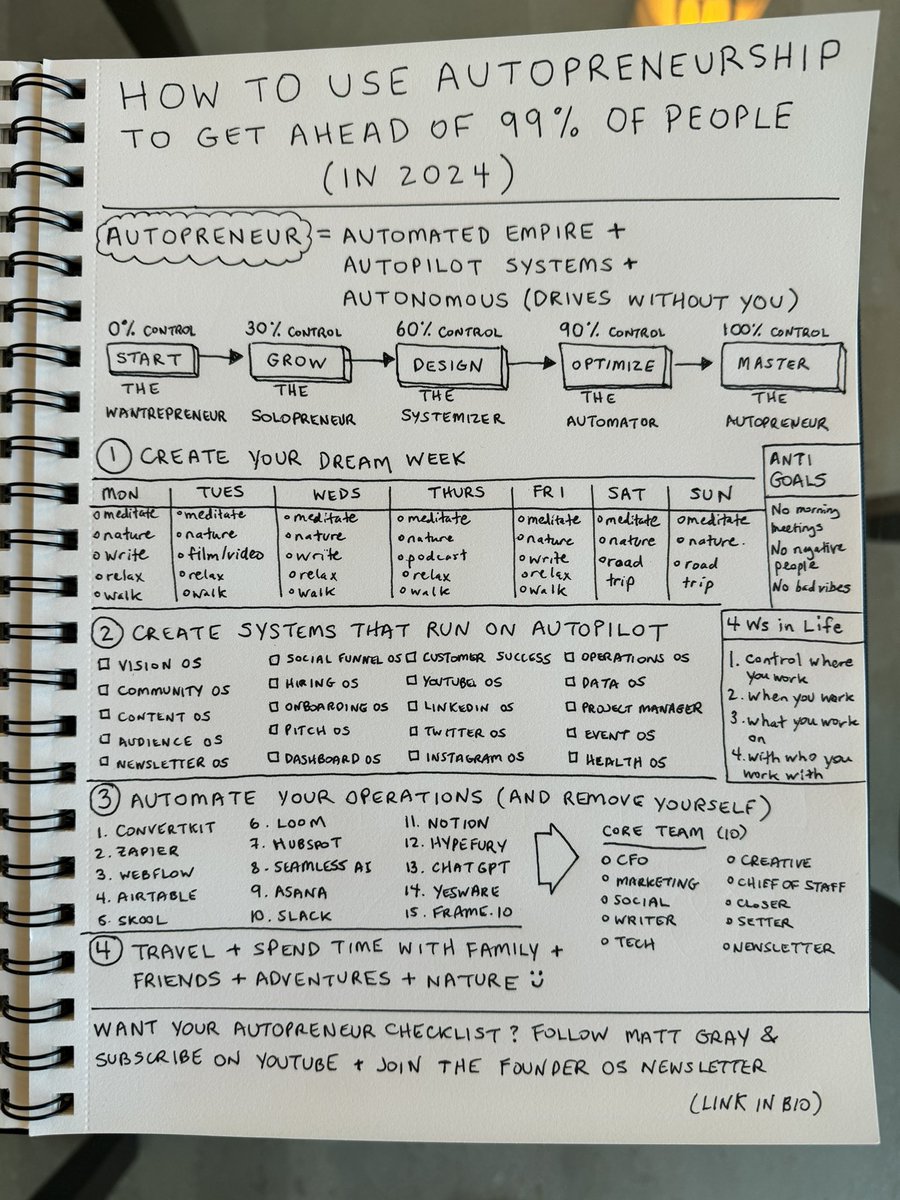 HOW TO USE AUTOPRENEURSHIP
TO GET AHEAD OF 99% OF PEOPLE
(IN 2024)
AUTOPRENEUR = AUTOMATED EMPIRE +
AUTOPILOT SYSTEMS +
AUTONOMOUS (DRIVES WITHOUT YOU)
0% CONTROL 30% CONTROL 60% CONTROL 90% CONTROL 100% CONTROL
START GROW DESIGN OPTIMIZE MASTER
THE THE THE THE THE
WANTREPRENEUR SOLOPRENEUR SYSTEMIZER AUTOMATOR AUTOPRENEUR
1 CREATE YOUR DREAM WEEK
MON TUES WEDS THURS FRI SAT SUN
meditate meditate meditate meditate meditate meditate meditate
nature nature nature nature nature nature nature.
write film/video write podcast write road road
relax relax relax relax relax trip trip
walk walk walk walk walk
ANTI
GOALS
No morning
meetings
No negative
people
No bad vibes
2 CREATE SYSTEMS THAT RUN ON AUTOPILOT
VISION OS SOCIAL FUNNEL OS CUSTOMER SUCCESS OPERATIONS OS
COMMUNITY OS HIRING OS YOUTUBE OS DATA OS
CONTENT OS ONBOARDING OS LINKEDIN OS PROJECT MANAGER
AUDIENCE OS PITCH OS TWITTER OS EVENT OS
NEWSLETTER OS DASHBOARD OS INSTAGRAM OS HEALTH OS
4 Ws in Life
1. Control where
you work
2. when you work
3. what you work
on
4. with who you
work with
3 AUTOMATE YOUR OPERATIONS (AND REMOVE YOURSELF)
1. CONVERTKIT 6. LOOM 11. NOTION
2. ZAPIER 7. HUBSPOT 12. HYPEFURY
3. WEBFLOW 8. SEAMLESS AI 13. CHATGPT
4. AIRTABLE 9. ASANA 14. YESWARE
5. SKOOL 10. SLACK 15. FRAME.IO
CORE TEAM (10)
CFO CREATIVE
MARKETING CHIEF OF STAFF
SOCIAL CLOSER
WRITER SETTER
TECH NEWSLETTER
4 TRAVEL + SPEND TIME WITH FAMILY +
FRIENDS + ADVENTURES + NATURE
WANT YOUR AUTOPRENEUR CHECKLIST? FOLLOW MATT GRAY &
SUBSCRIBE ON YOUTUBE + JOIN THE FOUNDER OS NEWSLETTER
(LINK IN BIO)